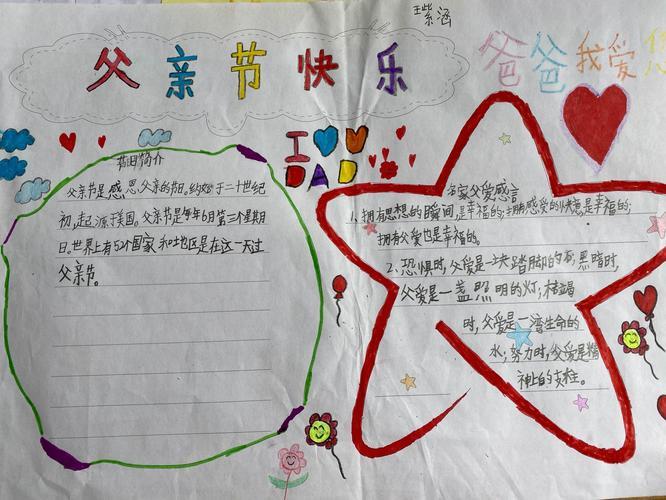 王紫涵
父亲节快乐
爸爸我爱你
I U
DAD
节日简介
父亲节是感恩父亲的节日。约始于二十世纪
初,起源于美国。父亲节是每年6月第三个星期
日。世界上有52个国家和地区是在这一天过
父亲节。
名家父爱感言
1、拥有思想的瞬间,是幸福的;拥有感受的快意是幸福的;
拥有父爱也是幸福的。
2、恐惧时,父爱是一块踏脚的石;黑暗时,
父爱是一盏照明的灯;枯竭
时,父爱是一湾生命的
水;努力时,父爱是精
神上的支柱。